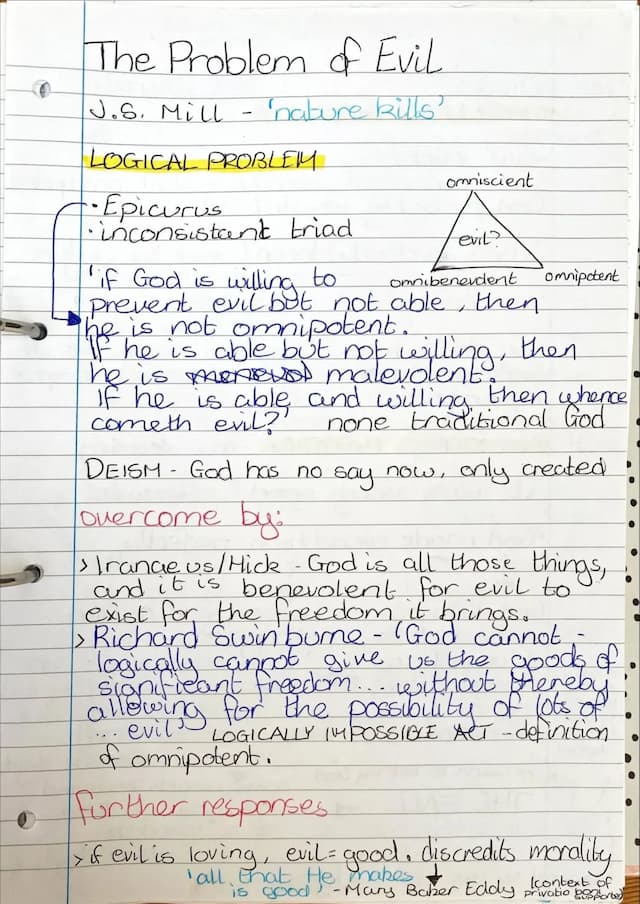 The Problem of Evil
J.S. Mill - 'nature kills'
LOGICAL PROBLEM
omniscient
• Epicurus
• inconsistant triad
evil?
omnibenevolent
omnipotent
'if God is willing to
prevent evil but not able, then
he is not omnipotent.
If he is able but not willing, then
he is malevolent.
If he is able and willing then whence
cometh evil?' none traditional God
DEISM - God has no say now, only created
overcome by:
> Iranaeus/Hick - God is all those things,
and it is benevolent for evil to
exist for the freedom it brings.
> Richard Swinburne - 'God cannot -
logically cannot give us the goods of
significant freedom... without thereby
allowing for the possibility of lots of
... evil' LOGICALLY IMPOSSIBLE ACT - definition
of omnipotent.
further responses
> if evil is loving, evil = good. discredits morality
'all that He makes
is good' - Mary Baker Eddy
(context of
privatio boni